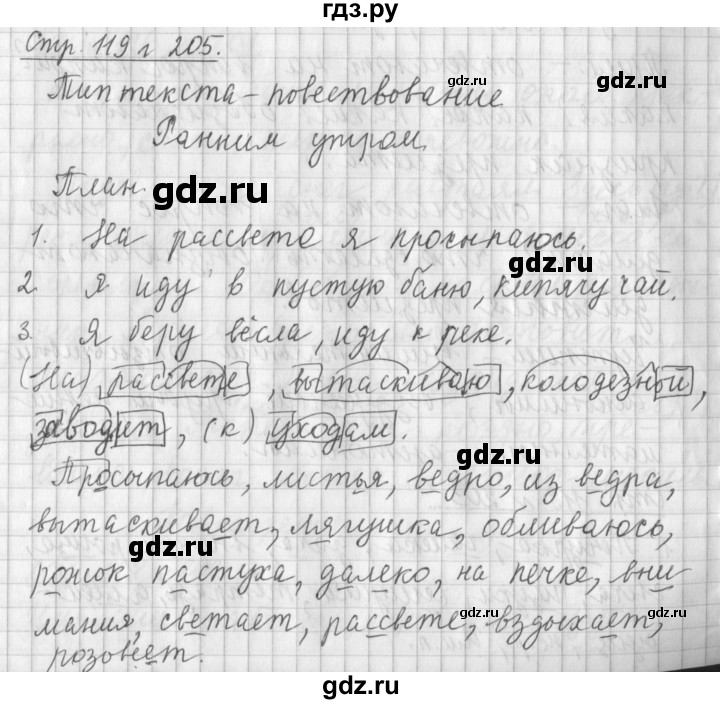 гдз.ру
Стр. 119 г 205.
Тип текста - повествование
gdz.ru
gdz.ru
Ранним утром.
План.
gdz.ru
1. На рассвете я просыпаюсь.
gdz.ru
2. Я иду в пустую баню, кипячу чай.
3. Я беру вёсла, иду к реке.
(На) рассвете, вытаскиваю, колодезной,
заводит, (к) уходам.
gdz.ru
Просыпаюсь, листья, ведро, из ведра,
вытаскивает, лягушка, обливаюсь,
gdz.ru
рожок пастуха, далеко, на печке, вни
мания, светает, рассвете, вздыхает,
gdz.ru
gdz.ru
розовеет.
gdz.ru